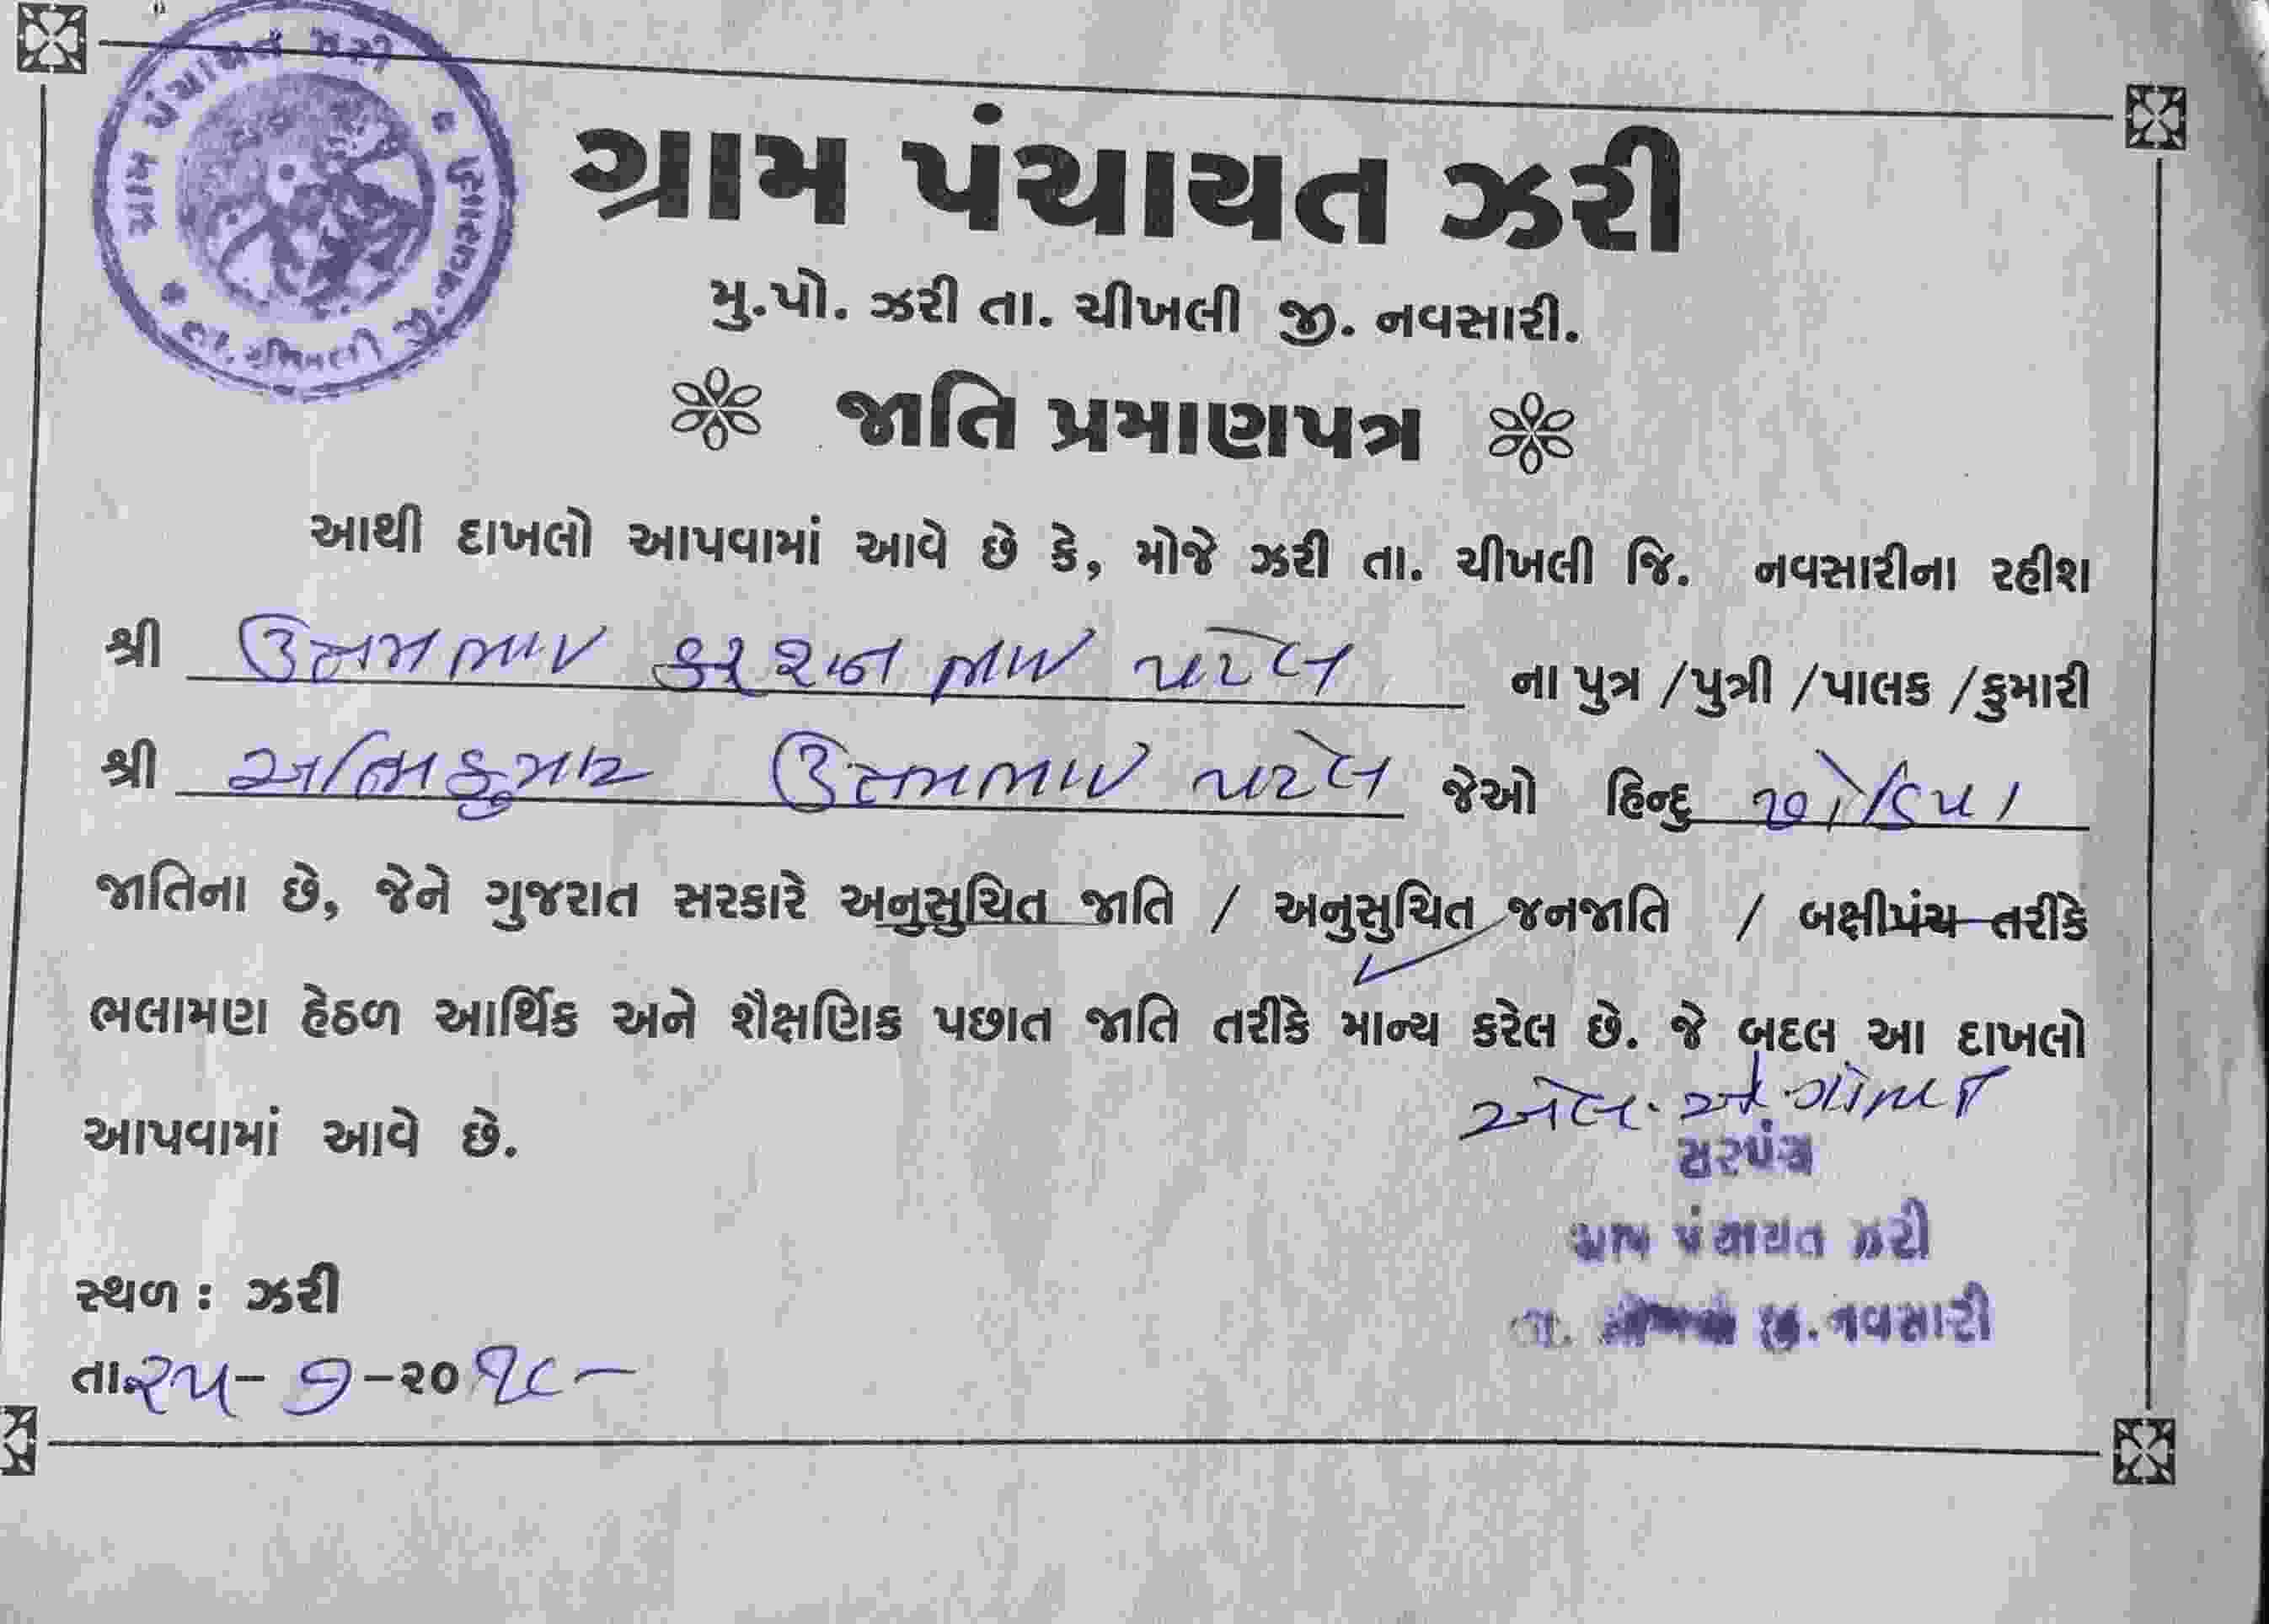 ગ્રામ પંચાયત ઝરી
મુ.પો. ઝરી તા. ચીખલી જી. નવસારી.
જાતિ પ્રમાણપત્ર
આથી દાખલો આપવામાં આવે છે કે, મોજે ઝરી તા. ચીખલી જિ. નવસારીના રહીશ
શ્રી ઉત્તમભાઈ કરશનભાઈ પટેલ ના પુત્ર /પુત્રી /પાલક /કુમારી
શ્રી ઉત્તમભાઈ પટેલ જેઓ હિન્દુ ધોડિયા
જાતિના છે, જેને ગુજરાત સરકારે અનુસુચિત જાતિ / અનુસુચિત જનજાતિ / બક્ષીપંચ તરીકે
ભલામણ હેઠળ આર્થિક અને શૈક્ષણિક પછાત જાતિ તરીકે માન્ય કરેલ છે. જે બદલ આ દાખલો
આપવામાં આવે છે.
સરપંચ
ગ્રામ પંચાયત ઝરી
તા. જી. નવસારી
સ્થળ : ઝરી
તા.૨૫-૭-૨૦૧૮